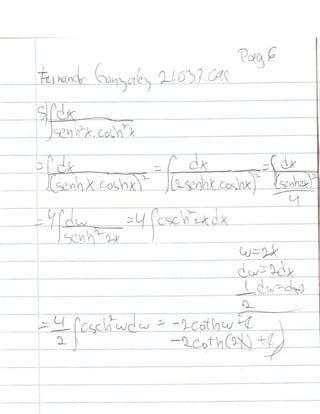 Pag 6
Fernando Gonzalez 21037.098
5) ∫ dx / senh²x.cosh²x
= ∫ dx / (senhx.coshx)² = ∫ dx / (2senhx.coshx)² = ∫ dx / (senh2x)² / 4
= 4 ∫ dw / senh² 2x = 4 ∫ csch² 2x dx
w=2x
dw=2dx
1/2 dw=dx
= 4/2 ∫ csch² w dw = -2cothw + C
-2coth(2x) + C